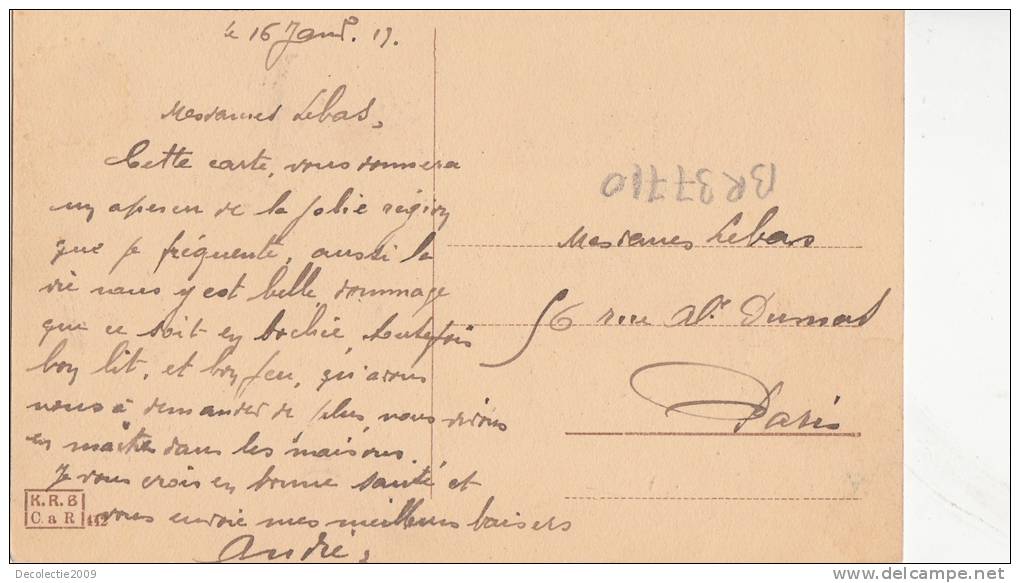 le 16 Janr. 19.
Mesdames Lebas,
Cette carte, vous donnera
un apercu de la jolie région
que je fréquente, aussi la
vie nous y est belle, dommage
que ce soit en bochie, toutefois
bon lit, et bon feu, qu'avons
nous à demander de plus, nous vivons
en maître dans les maisons.
Je vous crois en bonne santé et
vous envoie mes meilleurs baisers
André,
BR37710
Mesdames Lebas
56 rue Alx Dumas
Paris
K.R.B
C.a R 442
Decolectie2009
www.delcampe.net